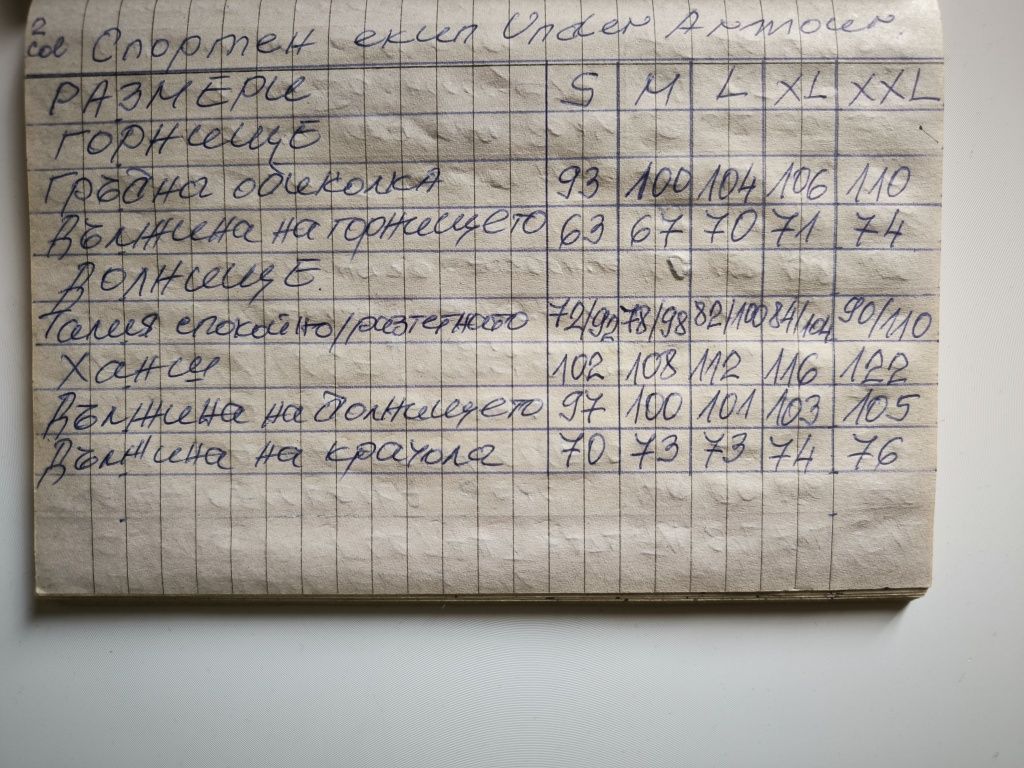 2
Сов Спортен екип Under Armour.
РАЗМЕРИ S M L XL XXL
ГОРНИЩЕ
Гръдна обиколка 93 100 104 106 110
Дължина на горнището 63 67 70 71 74
ДОЛНИЩЕ.
Талия спокойно//разтегнато 72/92 78/98 82/100 84/104 90/110
Ханш 102 108 112 116 122
Дължина на долнището 97 100 101 103 105
Дължина на крачола 70 73 73 74 76